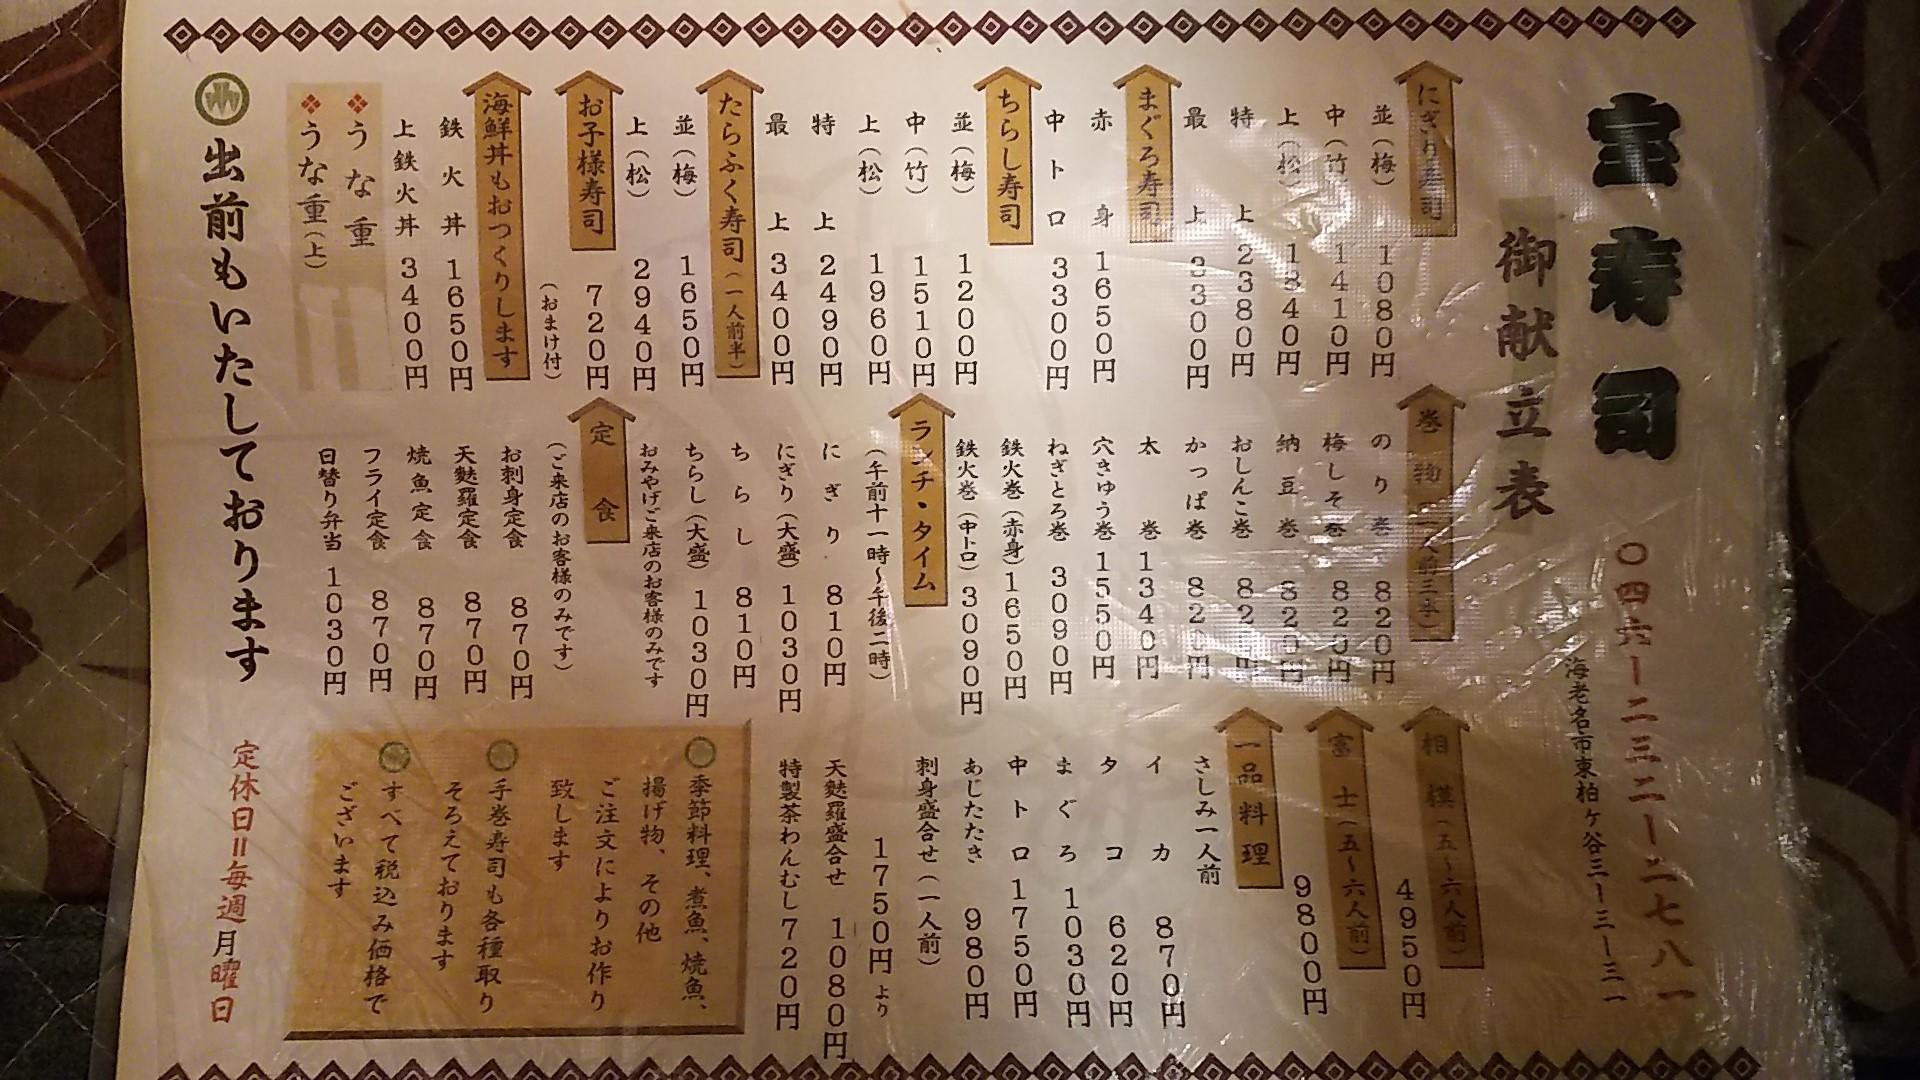 宝寿司
御献立表
〇四六ー二三二ー二七八一
海老名市東柏ケ谷三ー三ー三一
にぎり寿司
並(梅) 1080円
中(竹) 1410円
上(松) 1840円
特上 2380円
最上 3300円
まぐろ寿司
赤身 1650円
中トロ 3300円
ちらし寿司
並(梅) 1200円
中(竹) 1510円
上(松) 1960円
特上 2490円
最上 3400円
たらふく寿司(一人前半)
並(梅) 1650円
上(松) 2940円
お子様寿司 720円
(おまけ付)
海鮮丼もおつくりします
鉄火丼 1650円
上鉄火丼 3400円
うな重
うな重(上)
巻物(一人前三本)
のり巻 820円
梅しそ巻 820円
納豆巻 820円
おしんこ巻 820円
かっぱ巻 820円
太巻 1340円
穴きゅう巻 1550円
ねぎとろ巻 3090円
鉄火巻(赤身) 1650円
鉄火巻(中トロ) 3090円
ランチ・タイム
(午前十一時〜午後二時)
にぎり 810円
にぎり(大盛) 1030円
ちらし 810円
ちらし(大盛) 1030円
おみやげご来店のお客様のみです
定食
(ご来店のお客様のみです)
お刺身定食 870円
天麩羅定食 870円
焼魚定食 870円
フライ定食 870円
日替り弁当 1030円
相模(五〜六人前)
4950円
富士(五〜六人前)
9800円
一品料理
さしみ一人前
イカ 870円
タコ 620円
まぐろ 1030円
中トロ 1750円
あじたたき 980円
刺身盛合せ(一人前)
1750円より
天麩羅盛合せ 1080円
特製茶わんむし 720円
季節料理、煮魚、焼魚、
揚げ物、その他
ご注文によりお作り
致します
手巻寿司も各種取り
そろえております
すべて税込み価格で
ございます
出前もいたしております
定休日=毎週月曜日